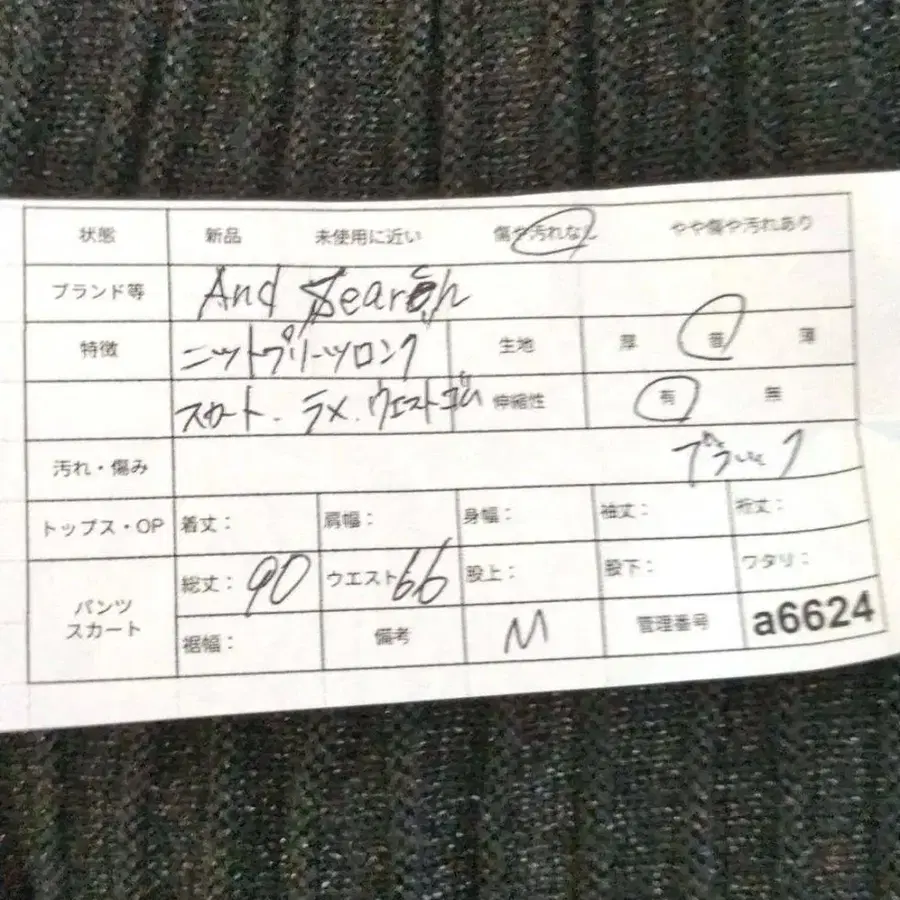 状態 新品 未使用に近い 傷や汚れなし やや傷や汚れあり
ブランド等 And Search
特徴 ニットプリーツロング 生地 厚 普 薄
スカート. ラメ. ウエストゴム 伸縮性 有 無
汚れ・傷み ブラック
トップス・OP 着丈: 肩幅: 身幅: 袖丈: 裄丈:
パンツ スカート 総丈: 90 ウエスト 66 股上: 股下: ワタリ:
裾幅: 備考 M 管理番号 a6624